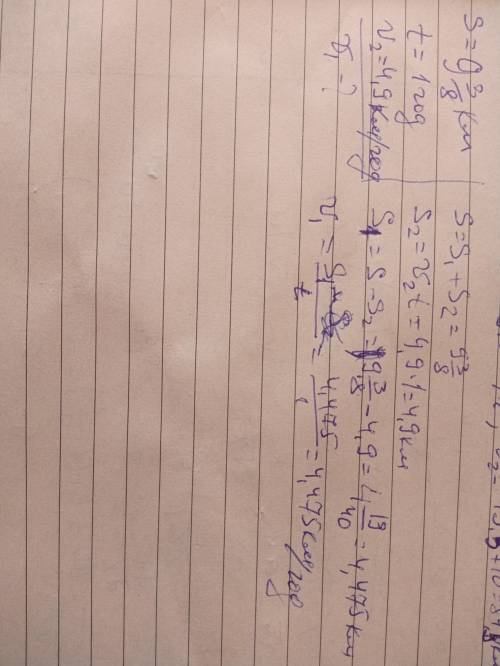 v₂ = 13,5+10=
S=9 3/8 км
t = 1 год
v₂=4,9 км/год
v₁ - ?
S=S₁+S₂= 9 3/8
S₂=v₂t=4,9·1=4,9 км
S₁ = S - S₂ = 9 3/8 - 4,9 = 4 19/40 = 4,475 км
v₁ = S₁/t = 4,475/1 = 4,475 км/год